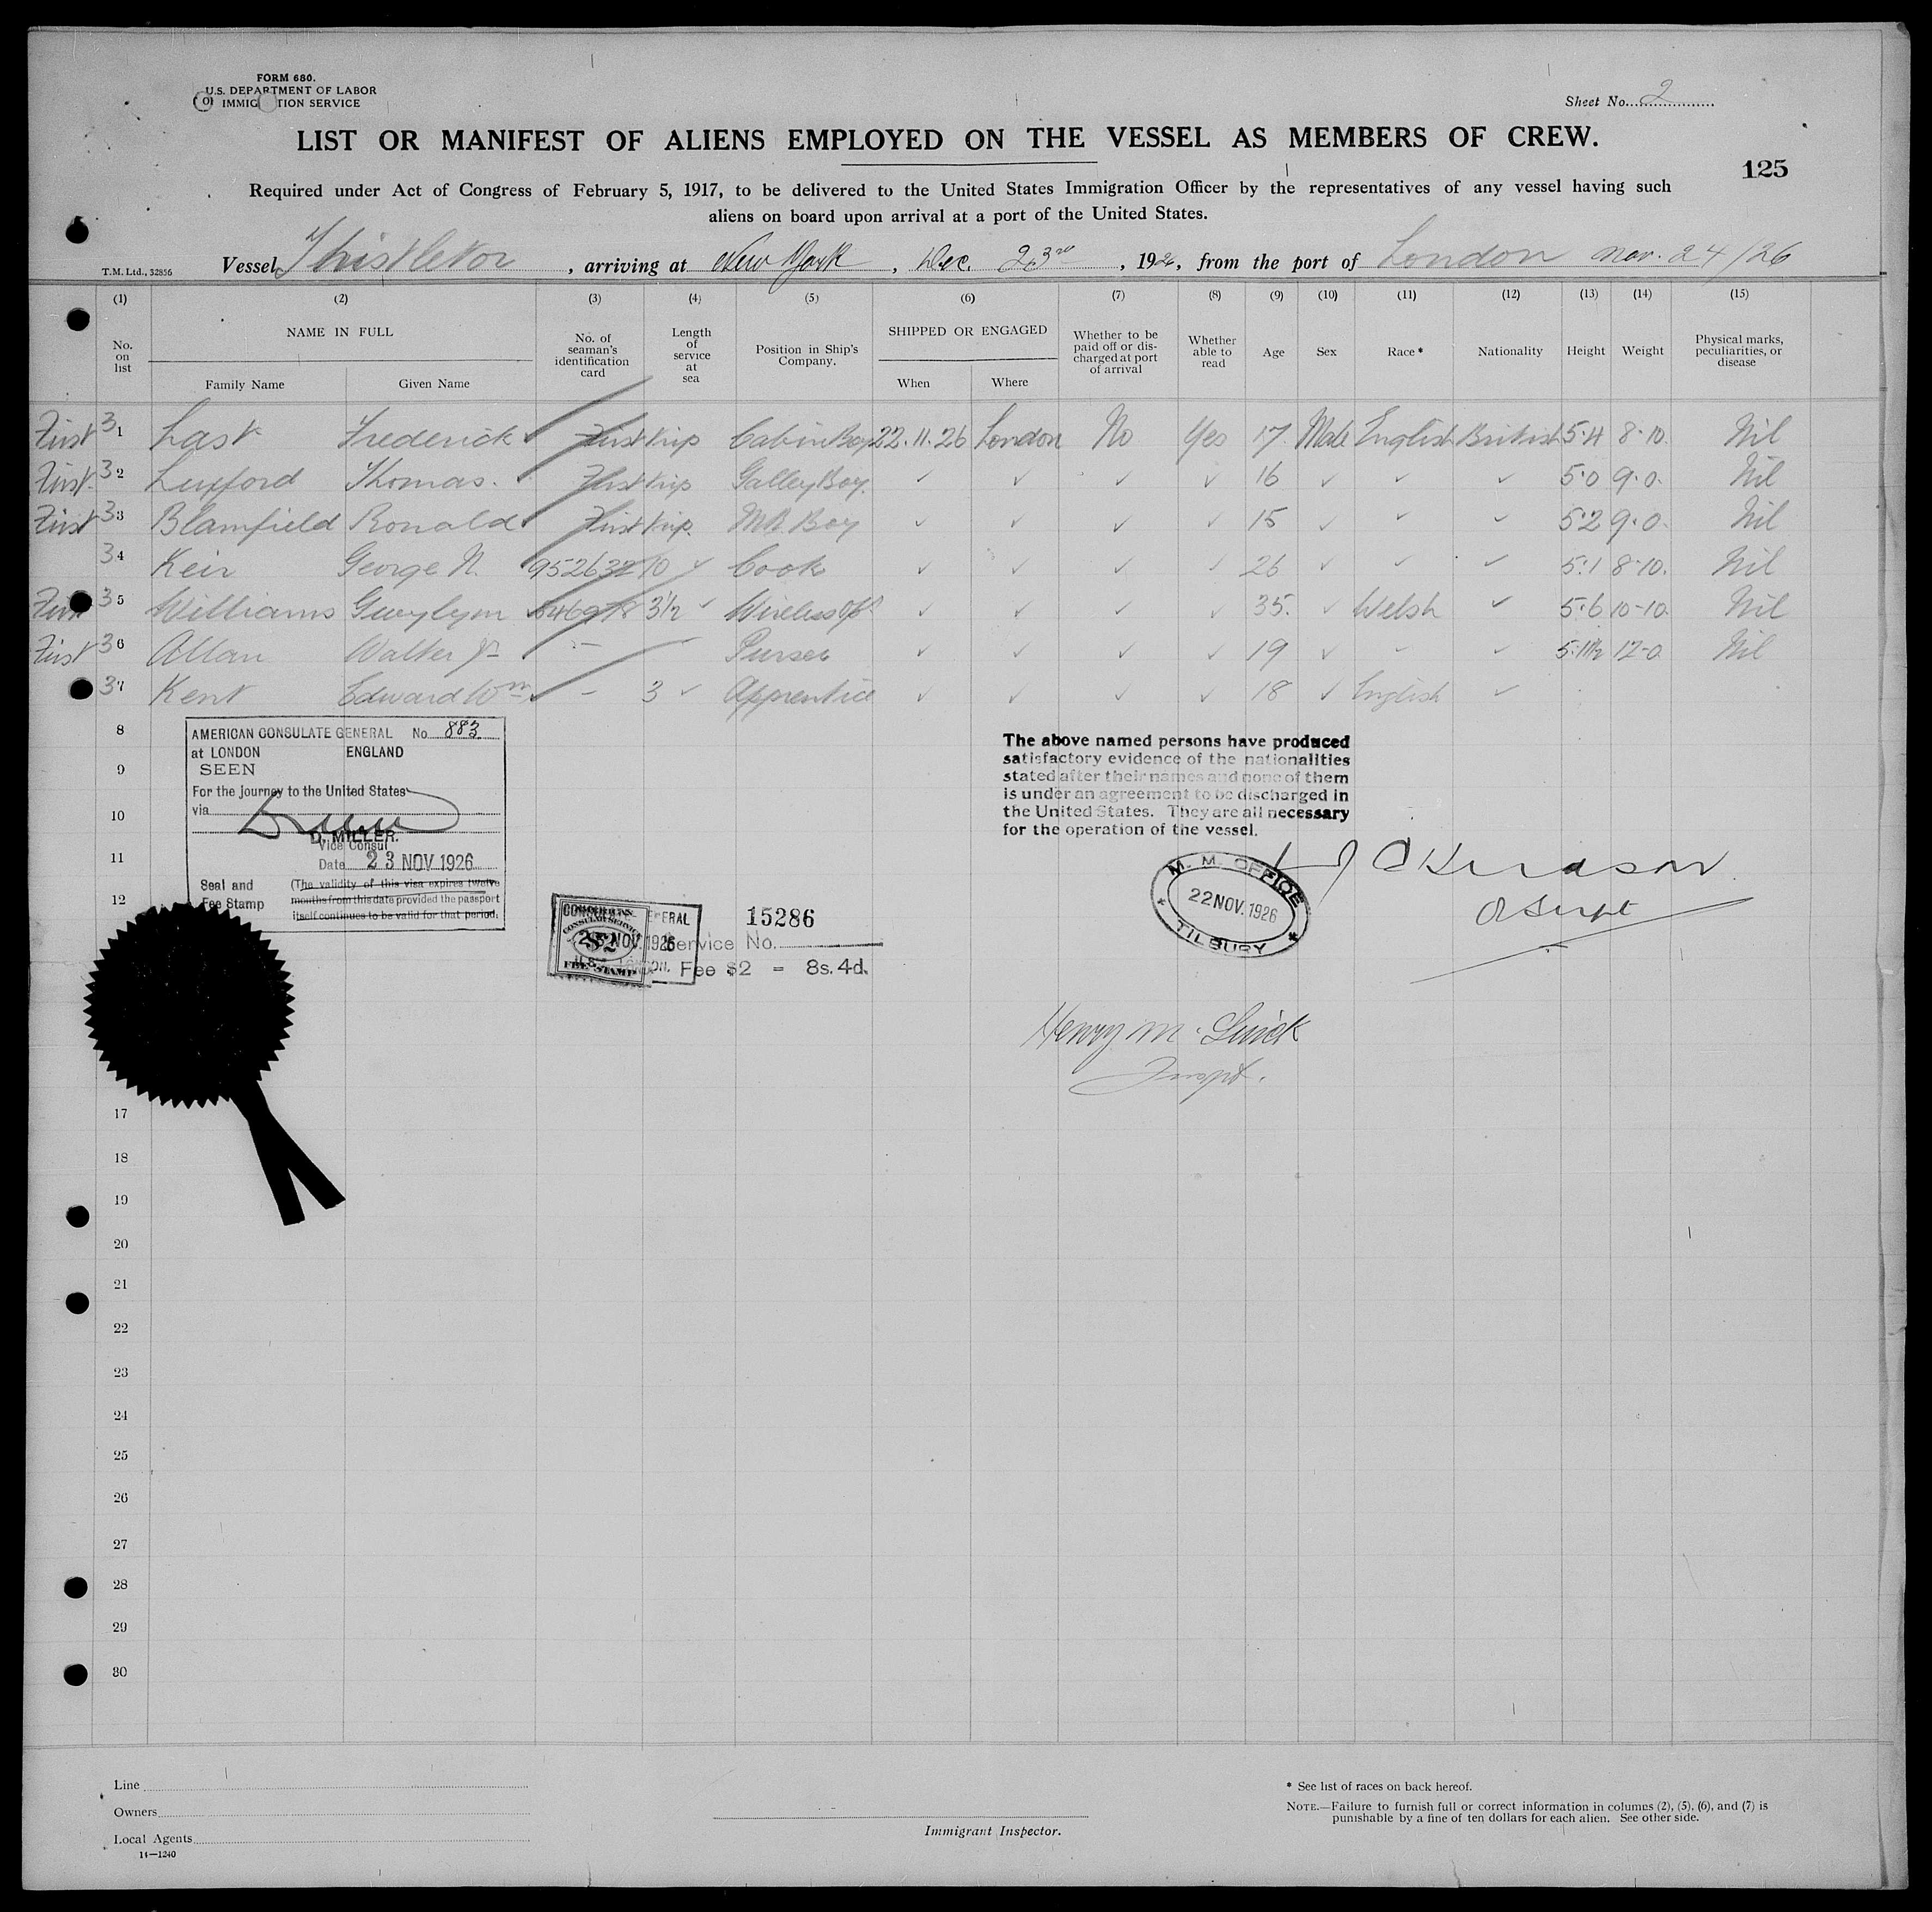 FORM 680.
U.S. DEPARTMENT OF LABOR
IMMIG TION SERVICE
Sheet No. 2
LIST OR MANIFEST OF ALIENS EMPLOYED ON THE VESSEL AS MEMBERS OF CREW.
125
Required under Act of Congress of February 5, 1917, to be delivered to the United States Immigration Officer by the representatives of any vessel having such
aliens on board upon arrival at a port of the United States.
T.M. Ltd., 32856 Vessel Thistletor, arriving at New York, Dec. 23rd, 1926, from the port of London Nov. 24/26
(1) (2) (3) (4) (5) (6) (7) (8) (9) (10) (11) (12) (13) (14) (15)
No. on list NAME IN FULL Family Name Given Name No. of seaman's identification card Length of service at sea Position in Ship's Company. SHIPPED OR ENGAGED When Where Whether to be paid off or dis-charged at port of arrival Whether able to read Age Sex Race* Nationality Height Weight Physical marks, peculiarities, or disease
First 31 Last Frederick First trip Cabin Boy 22.11.26 London No Yes 17 Male English British 5.4 8.10. Nil
First 32 Luxford Thomas. First trip Galley Boy. ✓ ✓ ✓ ✓ 16 ✓ ✓ ✓ 5.0 9.0. Nil
First 33 Blamfield Ronald First trip. MR Boy ✓ ✓ ✓ ✓ 15 ✓ ✓ ✓ 5.2 9.0. Nil
34 Keir George N. 952632 10 ✓ Cook ✓ ✓ ✓ ✓ 26 ✓ ✓ ✓ 5.1 8.10. Nil
First 35 Williams Gwylym 3½ ✓ Wireless Op ✓ ✓ ✓ ✓ 35. ✓ Welsh ✓ 5.6 10-10. Nil
First 36 Allan Walter Jr - Purser ✓ ✓ ✓ ✓ 19 ✓ - ✓ 5.11½ 12-0 Nil
37 Kent Edward Wm - 3 ✓ Apprentice ✓ ✓ ✓ ✓ 18 ✓ English ✓
8
9
10
11
12
AMERICAN CONSULATE GENERAL No. 883
at LONDON ENGLAND
SEEN
For the journey to the United States
via
D. MILLER.
Vice Consul
Date 23 NOV 1926
Seal and Fee Stamp
(The validity of this visa expires twelve
months from this date provided the passport
itself continues to be valid for that period.
The above named persons have produced
satisfactory evidence of the nationalities
stated after their names and none of them
is under an agreement to be discharged in
the United States. They are all necessary
for the operation of the vessel.
M. M. OFFICE
22 NOV. 1926
TILBURY
15286
Service No.
Fee $2 = 8s. 4d.
CONSULAR SERVICE
$2
FEE STAMP
NOV 1926
Henry M. Quick
Inspt.
17
18
19
20
21
22
23
24
25
26
27
28
29
30
Line
Owners
Local Agents
14—1240
Immigrant Inspector.
* See list of races on back hereof.
NOTE.—Failure to furnish full or correct information in columns (2), (5), (6), and (7) is
punishable by a fine of ten dollars for each alien. See other side.